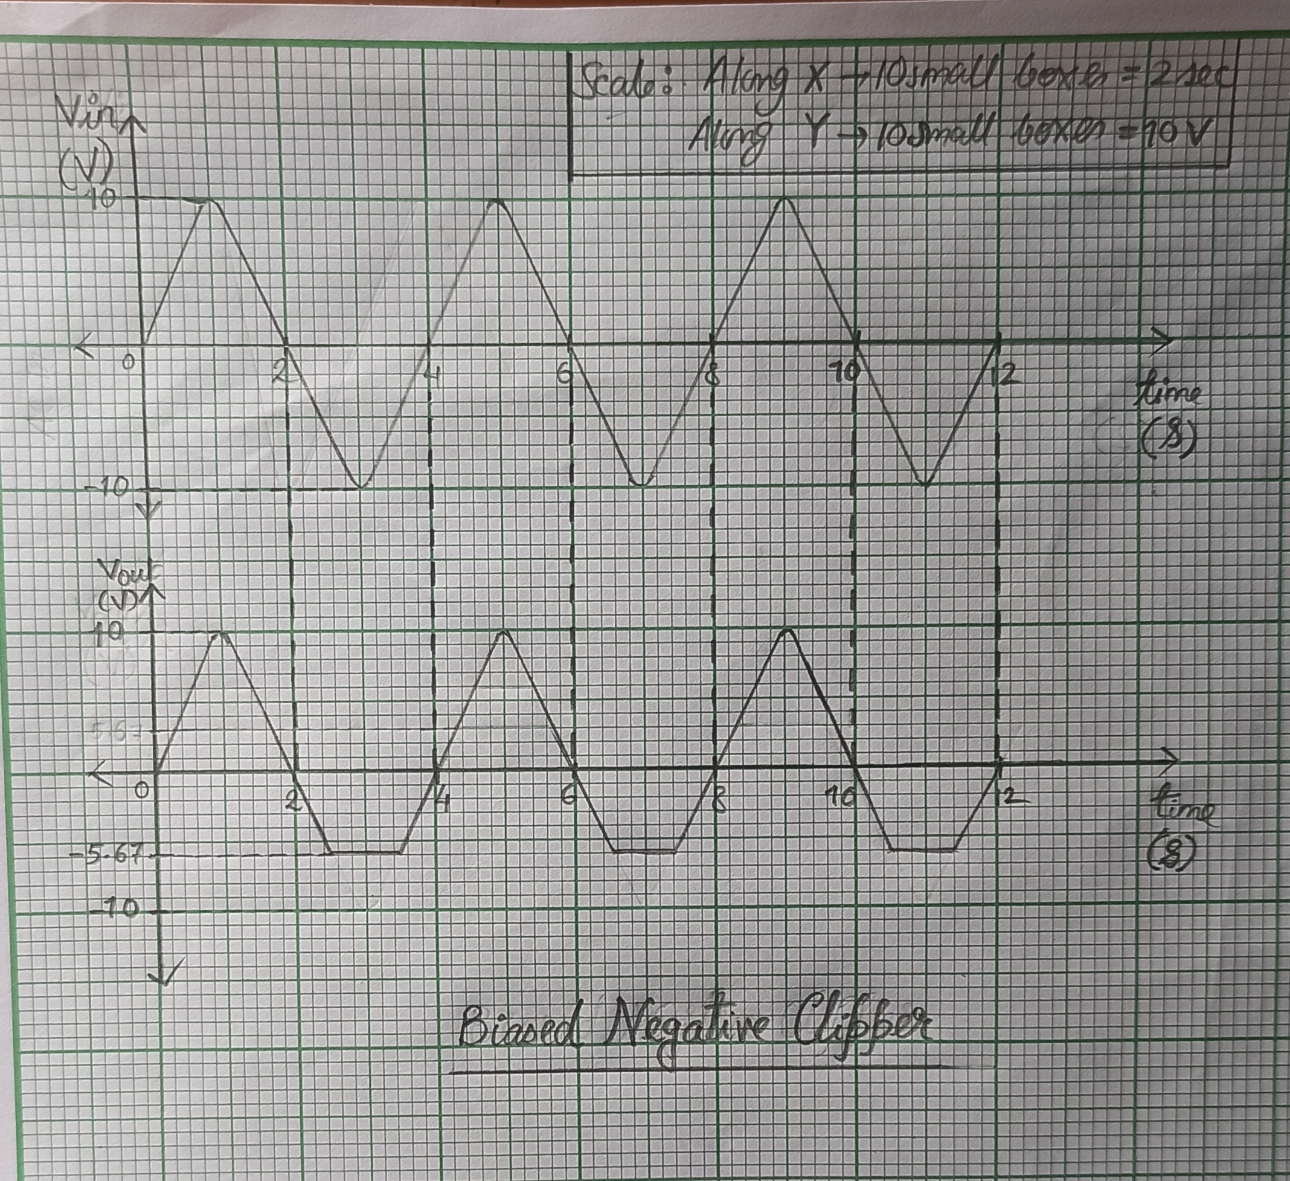 Scale: Along X → 10 small boxes = 2 sec
Along Y → 10 small boxes = 10 V
Vin
(V)
10
0 2 4 6 8 10 12
time
(s)
-10
Vout
(V)
10
5.67
0 2 4 6 8 10 12
time
(s)
-5.67
-10
Biased Negative Clipper